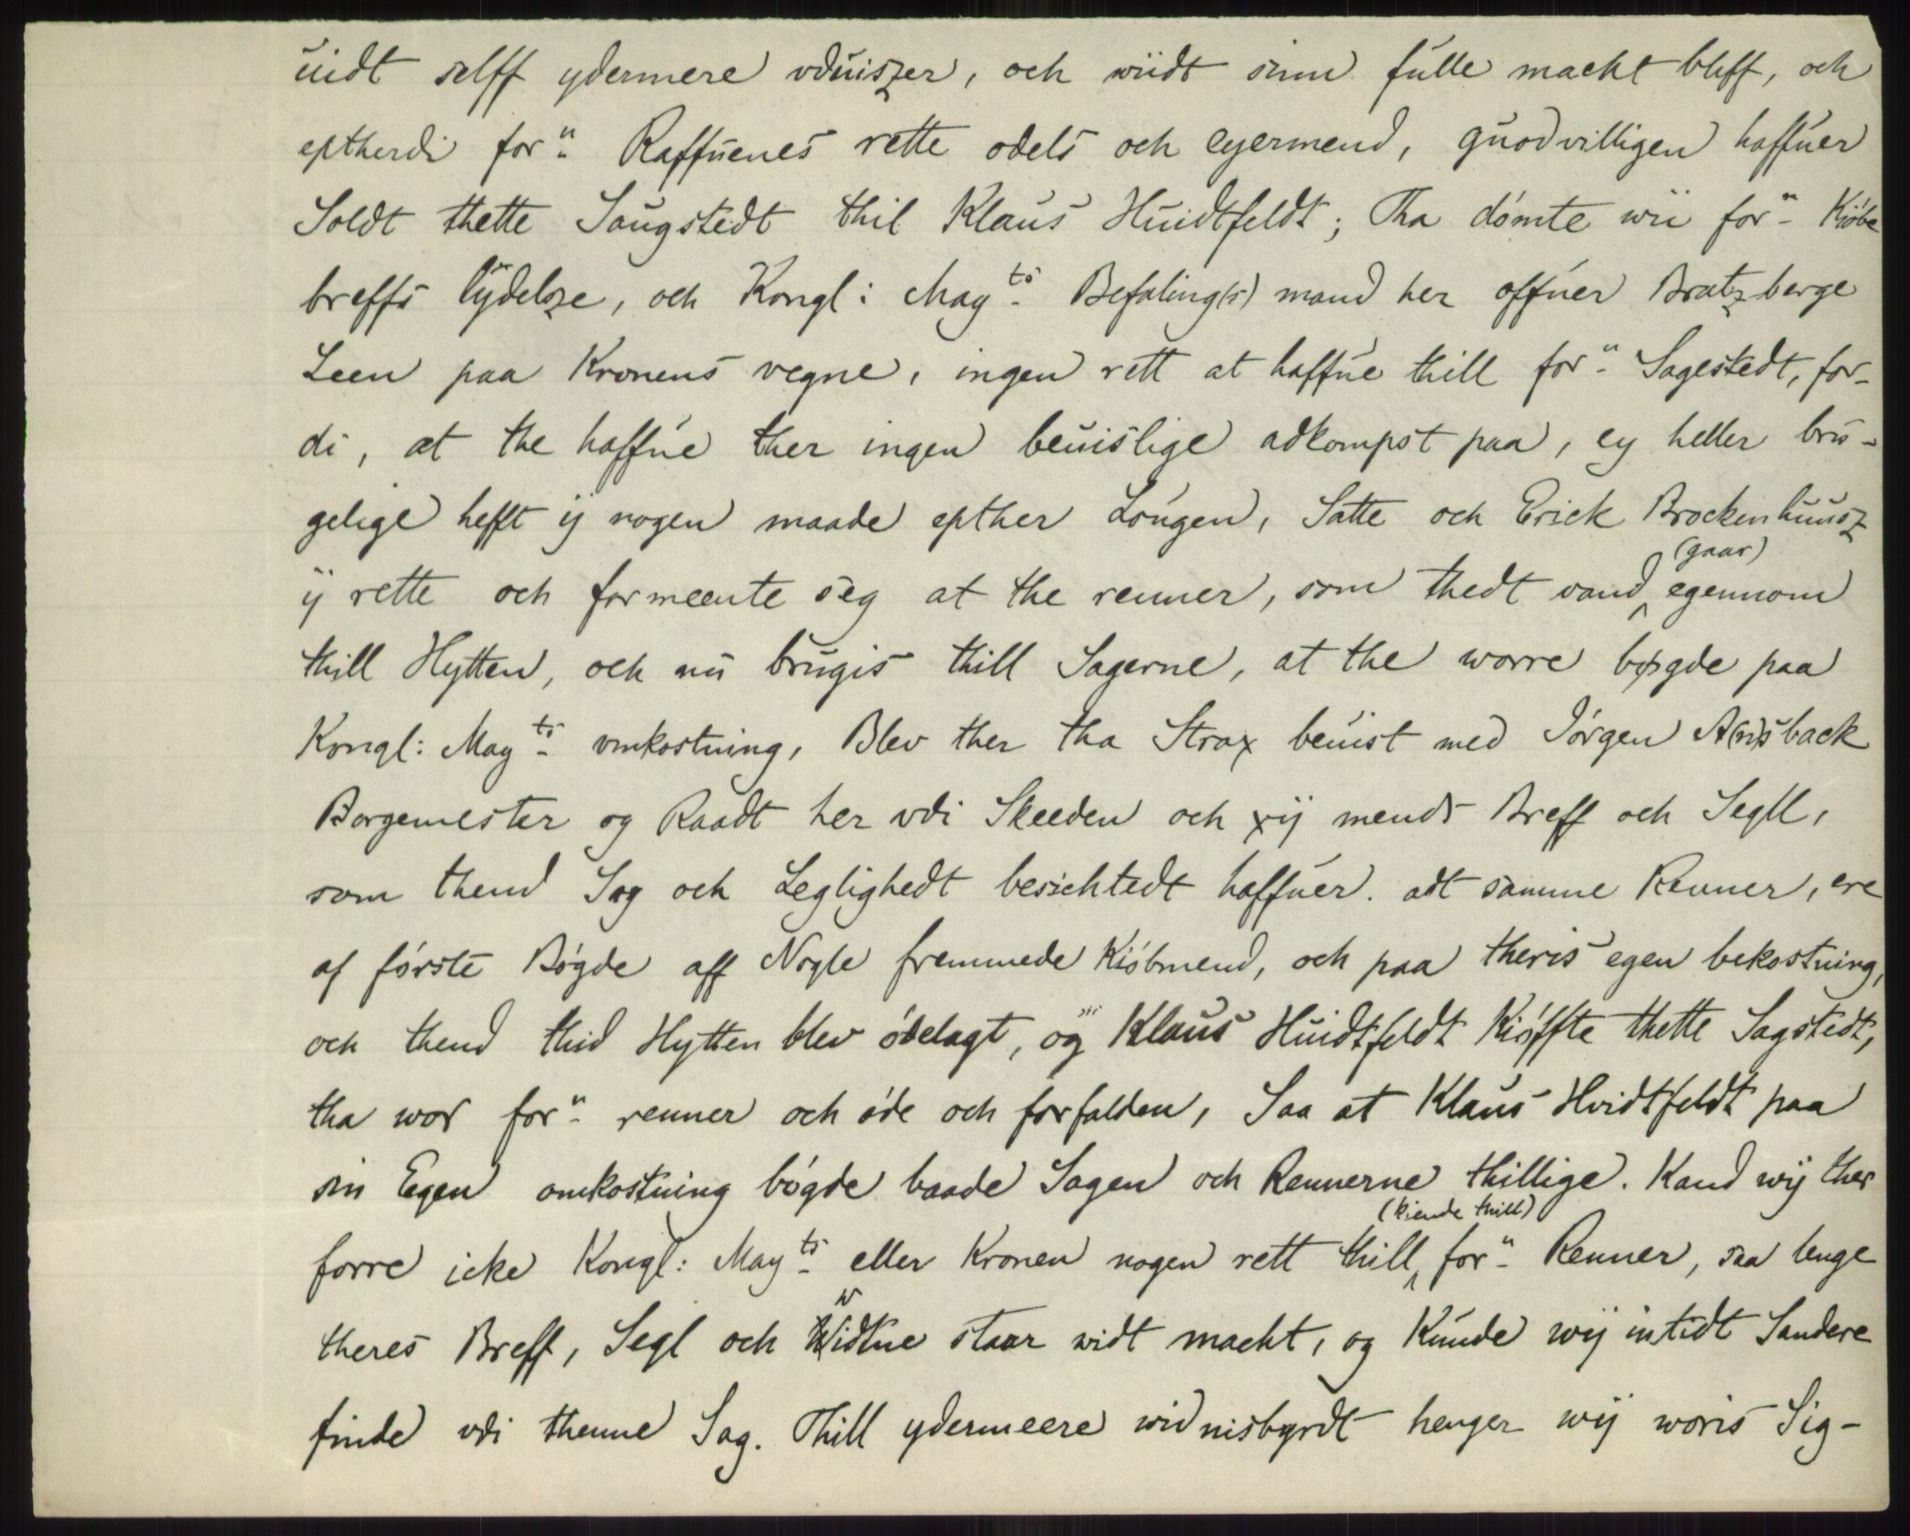 uidt selff ydermere vduiszer, och wiidt sinn fulle mackt bliff, och
eptherdi forⁿ Raffuenes rette odels och eyermend, guodvilligen haffuer
Soldt thette Saugstedt thil Klaus Huidtfeldt; Tha dømte wii forⁿ Kiøbe
breffs lÿdelsze, och Kongl: Mayts Befaling(s) mand her offuer Bratzberge
Leen paa Kronens vegne, ingen rett at haffue thill forⁿ Sagestedt, for-
di, at the haffue ther ingen beuislige adkompst paa, ey heller bru-
gelige hefft ij nogen maade epther Lougen, Satte och Erick Brockenhuusz
ij rette och formeente seg at the renner, som thedt vand (gaar) egennom
thill Hytten, och nu brugis thill Sagerne, at the worre bøgde paa
Kongl: Mayts omkostning, Blev ther tha Strax beuist med Jørgen A(n)sback
Borgemester og Raadt her vdi Skeeden och xij mends Breff och Segll,
som thend Sag och Leglighedt besichtedt haffuer. adt samme Renner, ere
af første Bøgde aff Nogle fremmede Kiøbmend, och paa theris egen bekostning,
och thend thid Hytten blev ødelagt, og Klaus Huidtfeldt Kiøffte thette Sagstedt,
tha wor forⁿ renner och øde och forfalden, Saa at Klaus Hvidtfeldt paa
sin Egen omkostning bøgde baade Sagen och Rennerne thillige. Kand wij ther
forre icke Kongl: Mayts eller Kronen nogen rett thill (kiende thill) forⁿ Renner, saa lenge
theres Breff, Segl och Widtne staar widt mackt, og Kunde wij intidt Sandere
finde vdi thenne Sag. Thill ydermeere widnisbyrdt henger wij woris Sig-